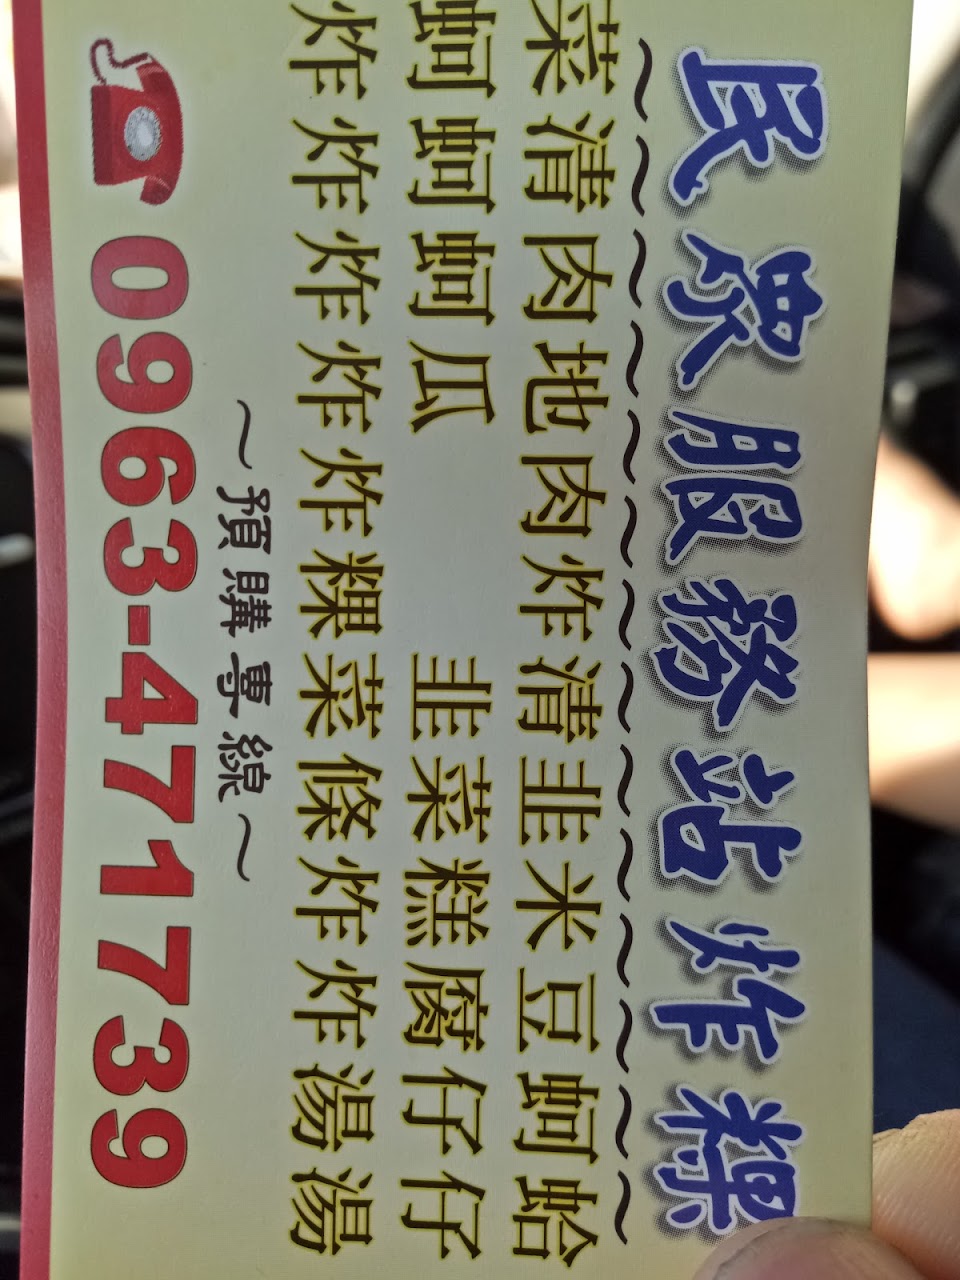 民眾服務站炸粿
菜蚵炸
清蚵炸
肉蚵炸
地瓜炸
肉炸
炸粿
清韭菜
韭菜條
米糕炸
豆腐炸
蚵仔湯
蛤仔湯
~預購專線~
0963-471739